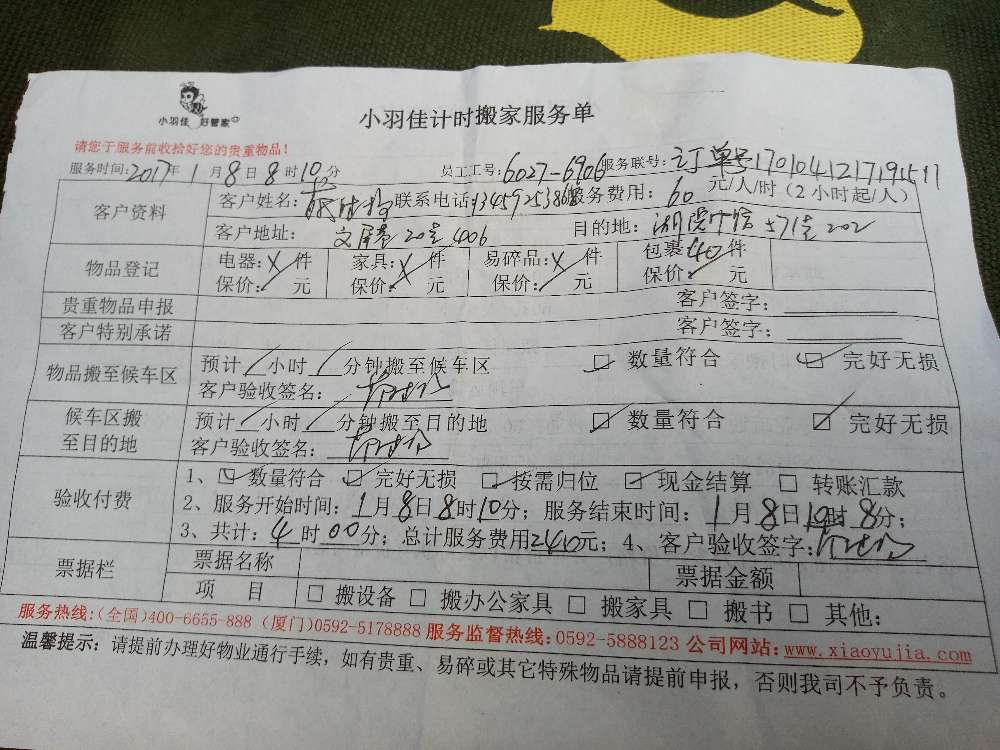 小羽佳 好管家
小羽佳计时搬家服务单
请您于服务前收拾好您的贵重物品！
服务时间：2017年1月8日8时10分 员工工号：6027-6906 服务联号：订单号17010412171951
客户资料 客户姓名： 联系电话：1345925386 服务费用：60元/人/时（2小时起/人）
客户地址：文屏巷20 406 目的地： 202
物品登记 电器： 件 家具： 件 易碎品： 件 包裹：40件
保价： 元 保价： 元 保价： 元 保价： 元
贵重物品申报 客户签字：
客户特别承诺 客户签字：
物品搬至候车区 预计/小时/分钟搬至候车区 ☑ 数量符合 ☑ 完好无损
客户验收签名：
候车区搬至目的地 预计/小时/分钟搬至目的地 ☑ 数量符合 ☑ 完好无损
客户验收签名：
验收付费 1、☑ 数量符合 ☑ 完好无损 ☑ 按需归位 ☑ 现金结算 □ 转账汇款
2、服务开始时间：1月8日8时10分；服务结束时间：1月8日 时 分；
3、共计：4时00分；总计服务费用240元；4、客户验收签字：
票据栏 票据名称 票据金额
项 目 □ 搬设备 □ 搬办公家具 □ 搬家具 □ 搬书 □ 其他：
服务热线：（全国）400-6655-888（厦门）0592-5178888 服务监督热线：0592-5888123 公司网站：www.xiaoyujia.com
温馨提示：请提前办理好物业通行手续，如有贵重、易碎或其它特殊物品请提前申报，否则我司不予负责。